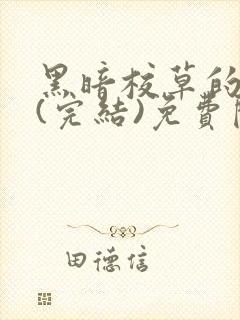 黑暗校草的
(完結)免費
田德信